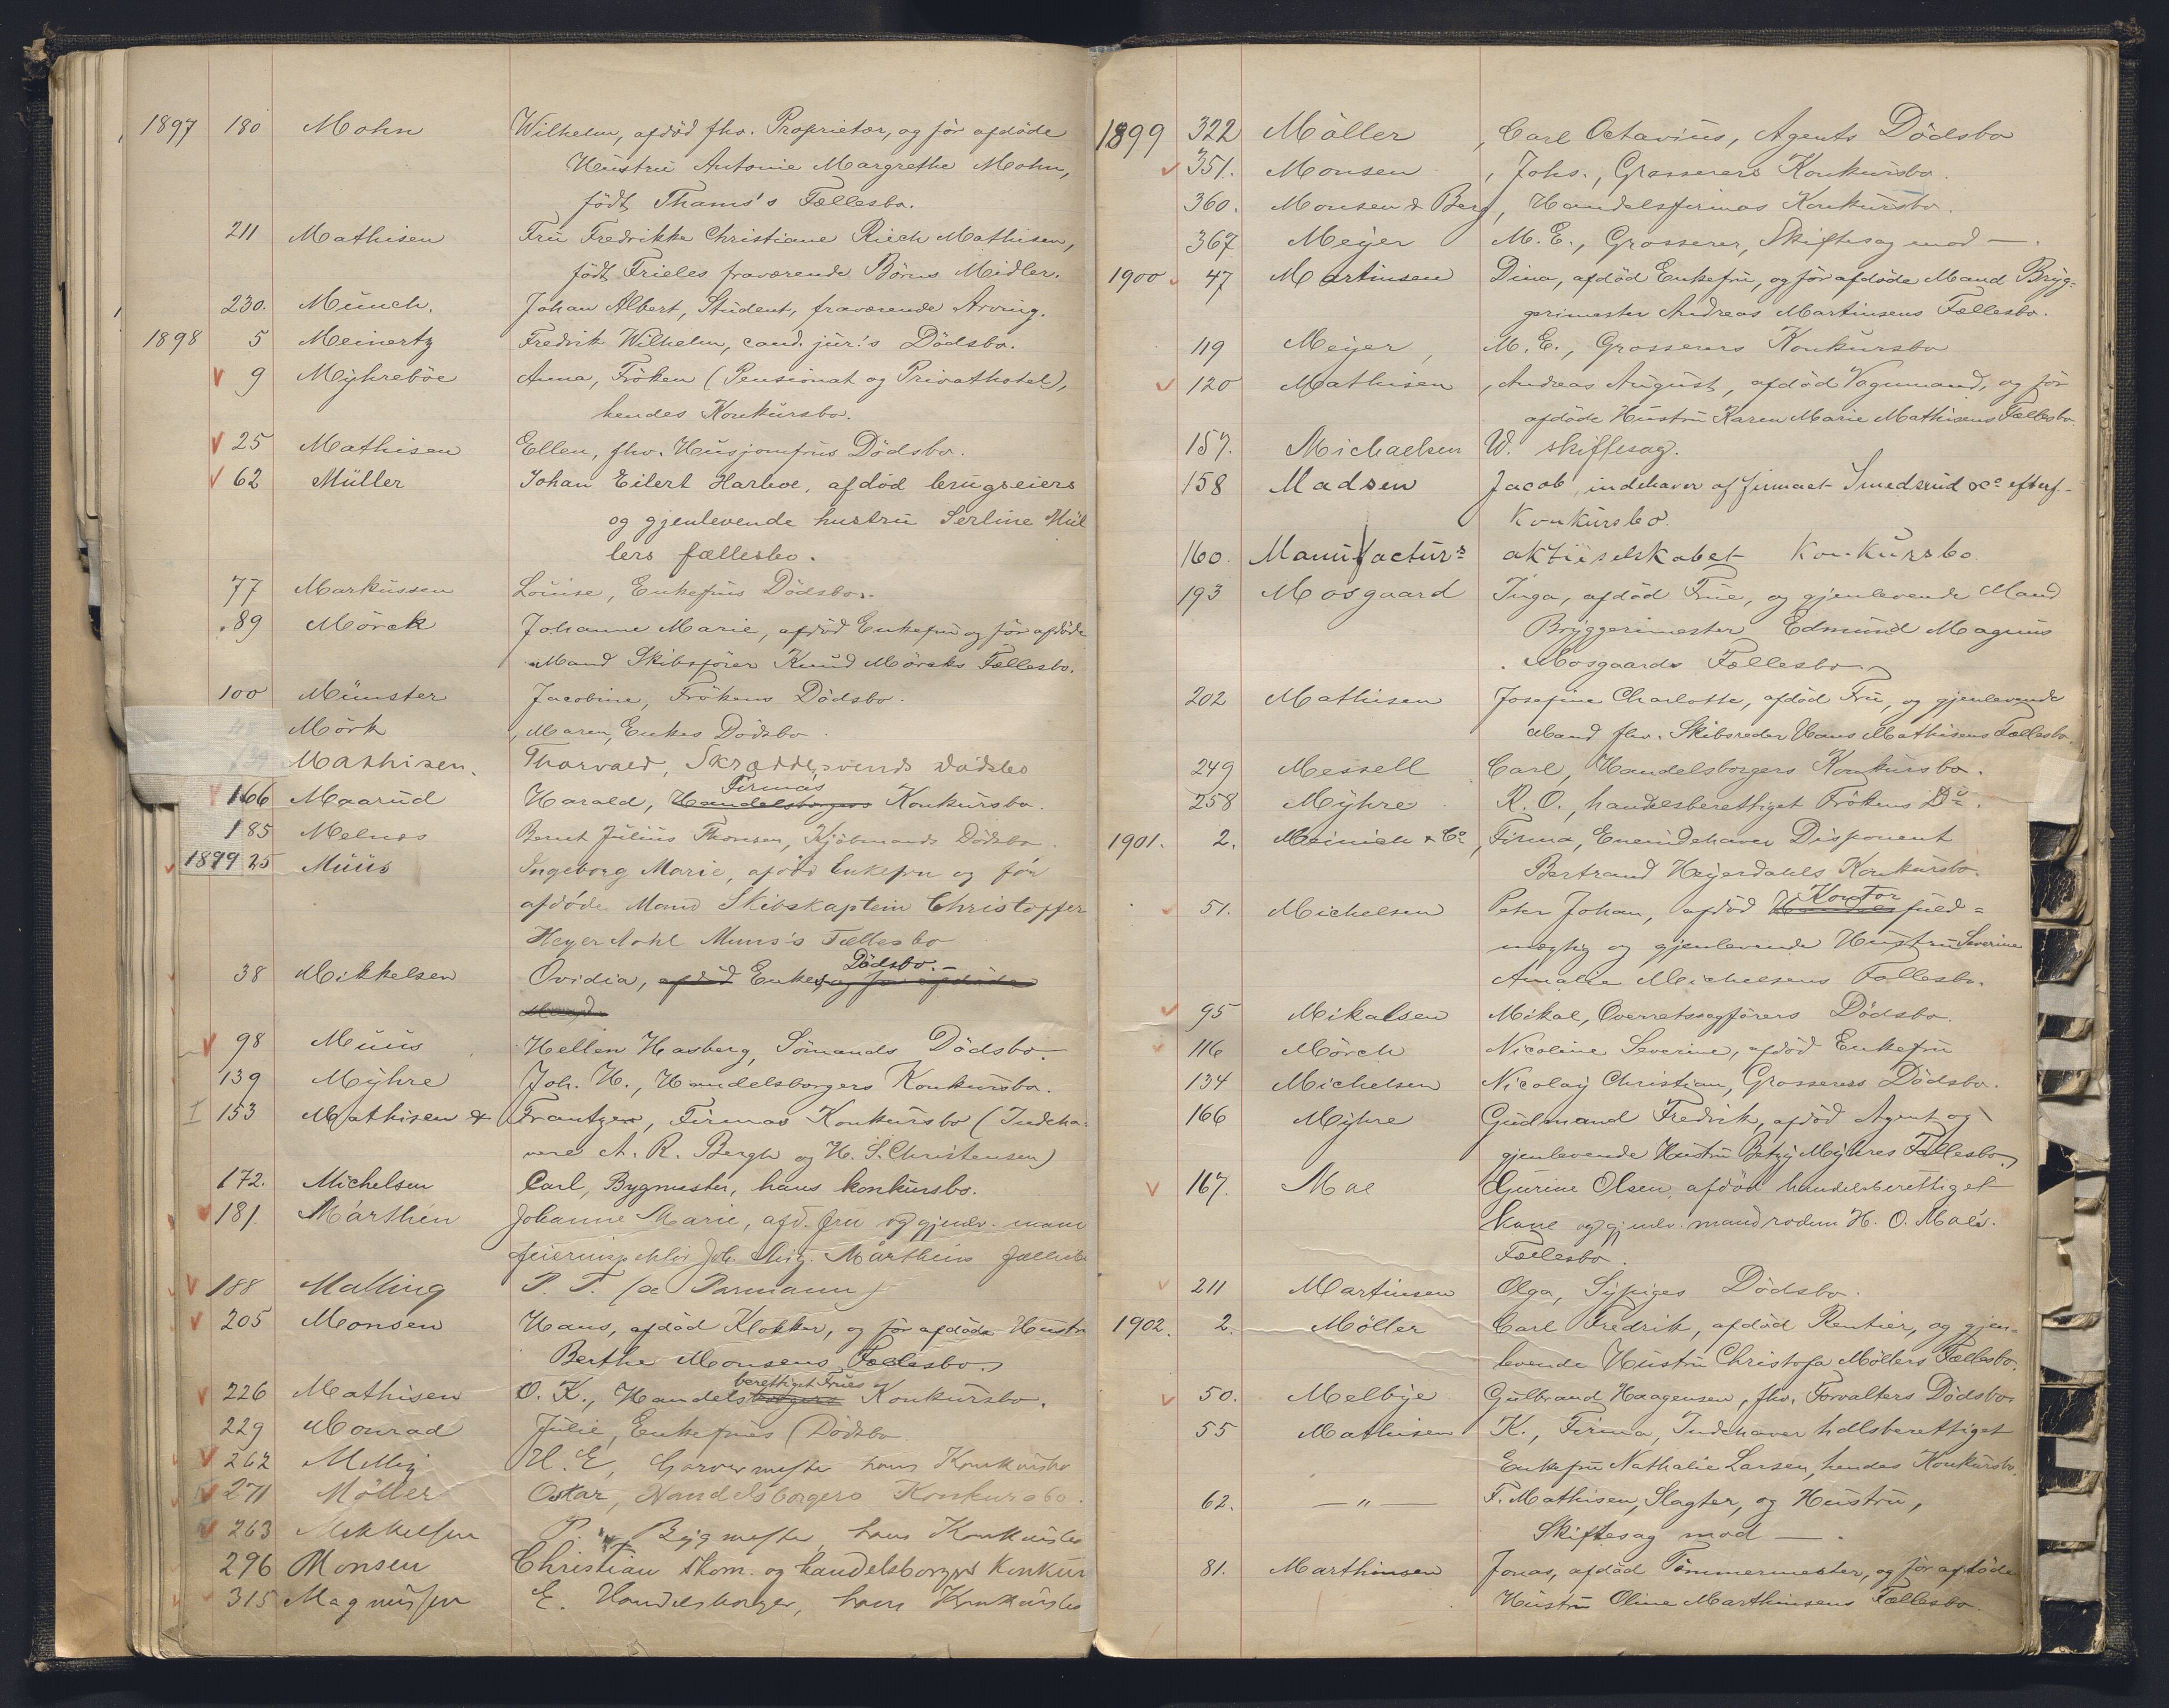 1897 180 Mohn Wilhelm, afdød fhv. Proprietær, og før afdøde
Hustru Antonie Margrethe Mohn,
født Thams's Fællesbo.
211 Mathisen Fru Fredrikke Christiane Riech Mathisen,
født Frieles fraværende Børns Midler.
230. Münch. Johan Albert, Student, fraværende Arving.
1898 5 Meinertz Fredrik Wilhelm, cand. jur.'s Dödsbo.
9 Myhreböe Anna, Fröken (Pensionat og Privathotel),
hendes Konkursbo.
25 Mathisen Ellen, fhv. Husjomfrus Dödsbo.
62 Müller Johan Eilert Harboe, afdöd brugseiers
og gjenlevende hustru Serline Mül
lers fællesbo.
77 Markussen Louise, Enkefrus Dödsbo.
89 Mörck Johanne Marie, afdöd Enkefru og för afdöde
Mand Skibsförer Knud Mörcks Fællesbo.
100 Münster Jacobine, Frökens Dödsbo.
Mörk , Maren, Enkes Dödsbo.
Mathisen. Thorvald, Skræddersvends Dödsbo
Firmas
166 Maarud Harald, Handelsborgers Konkursbo.
185 Melnæs Bernt Julius Thomsen, Kjöbmands Dödsbo.
1899 25 Muus Ingeborg Marie, afdöd Enkefru og för
afdöde Mand Skibskaptein Christoffer
Heyerdahl Muus's Fællesbo
Dödsbo.-
38 Mikkelsen Ovidia, afdöd Enkes og för afdöde
Mand
98 Muus Hellen Hasberg, Sömands Dödsbo.
139 Myhre Joh. H., Handelsborgers Konkursbo.
153 Mathisen & Frantzen, Firmas Konkursbo (Indeha-
vere A. R. Bergh og H. S. Christensen)
172. Michelsen Carl, Bygmester, hans konkursbo.
181 Marthén Johanne Marie, afd. fru og gjenlv. mand
feierinspektör Joh. Chrig. Marthéns fællesb
188 Malling P. T. (& Parmann)
205 Monsen Hans, afdöd Klokker, og för afdöde Hustru
Berthe Monsens Fællesbo.
berettiget Frues
226 Mathisen O. K., Handelsborgers Konkursbo.
229 Monrad Julie, Enkefrues Dödsbo
262 H. E, Garvermester hans Konkursbo
271 Möller Oskar, Handelsborgers Konkursbo.
263 Mikkelsen P. Bygmester, hans Konkursbo
296 Monsen Christian Skom. og handelsborgers Konkur
315 Magnussen E. Handelsborger, hans Konkursbo
1899 322 Möller , Carl Octavius, Agents Dödsbo
351. Monsen , Johs., Grosserers Konkursbo.
360. Monsen & Berg, Handelsfirmas Konkursbo.
367 Meyer M. E., Grosserer, Skiftesag mod —.
1900 47 Martinsen Dina, afdöd Enkefru, og för afdöde Mand Bryg-
gerimester Andreas Martinsens Fællesbo.
119 Meyer, M. E., Grosserers Konkursbo
120 Mathisen , Andreas August, afdöd Vognmand, og för
afdöde Hustru Karen Marie Mathisens Fællesbo.
157. Michaelsen W. skiftesag.
158 Madsen Jacob, indehaver af firmaet Smedsrud & Co efterf.
Konkursbo.
160. Manufactur= aktieselskabet Konkursbo.
193 Mosgaard Inga, afdöd Frue, og gjenlevende Mand
Bryggerimester Edmund Magnus
Mosgaards Fællesbo.
202 Mathisen Josefine Charlotte, afdöd Fru, og gjenlevende
Mand fhv. Skibsreder Hans Mathisens Fællesbo.
249 Messell Carl, Handelsborgers Konkursbo.
258 Myhre R. O., handelsberettiget Frökens Do.
1901. 2. Meinich & Co, Firma, Eneindehaver Disponent
Bertrand Heyerdahls Konkursbo.
Kontor
51. Michelsen Peter Johan, afdöd Handels fuld=
mægtig og gjenlevende Hustru Severine
Amalie Michelsens Fællesbo.
95 Mikalsen Mikal, Overretssagförers Dödsbo.
116 Mörch Nicoline Severine, afdöd Enkefru
134 Michelsen Nicolay Christian, Grosserers Dödsbo.
166 Myhre Gudmand Fredrik, afdöd Agent og
gjenlevende Hustru Betzy Myhres Fællesbo.
167. Mae Gurine Olsen, afdöd handelsberettiget
kone og gjenlv. mand rodem. H. O. Mae's.
Fællesbo.
211 Martinsen Olga, Sypiges Dödsbo.
1902. 2. Möller Carl Fredrik, afdöd Rentier, og gjen-
levende Hustru Christofa Möllers Fællesbo.
50. Melbye Gulbrand Haagensen, fhv. Forvalters Dödsbo
55 Mathisen K., Firma, Indehaver hdlsberettiget
Enkefru Nathalie Larsen, hendes Konkursbo.
62. — " — F. Mathisen, Slagter, og Hustru,
Skiftesag mod — .
81. Marthinsen Jonas, afdöd Tömmermester, og för afdöde
Hustru Oline Marthinsens Fællesbo.